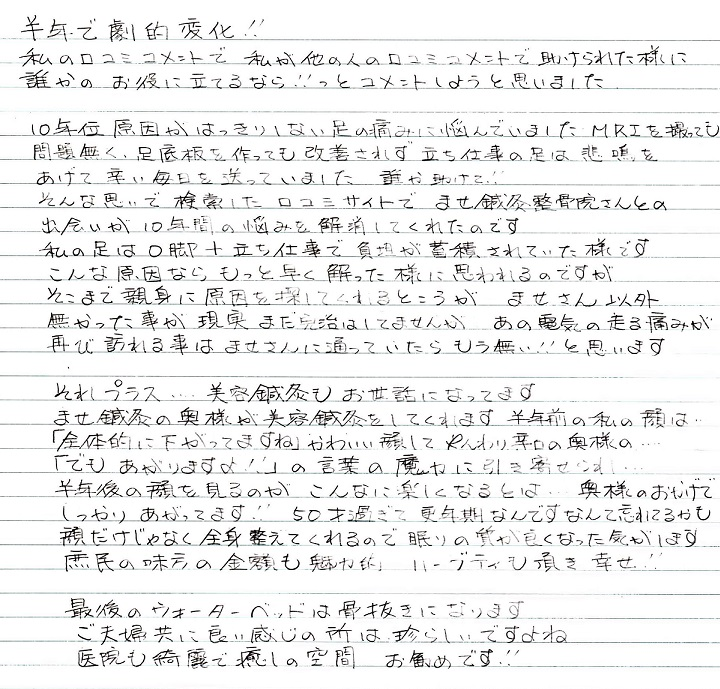 半年で劇的変化!!
私の口コミコメントで 私が他の人の口コミコメントで助けられた様に
誰かの お役に立てるなら!!っと コメントしようと思いました
10年位 原因がはっきりしない足の痛みに悩んでいました MRIを撮っても
問題無く、足底板を作っても 改善されず 立ち仕事の足は 悲鳴を
あげて 辛い毎日を 送っていました 誰か助けて!!
そんな思いで 検索した 口コミサイトで ませ鍼灸整骨院さんとの
出会いが 10年間の悩みを 解消してくれたのです
私の足は O脚+立ち仕事で 負担が蓄積されていた様です
こんな原因なら もっと早く 解った様に 思われるのですが
そこまで親身に 原因を探してくれるところが ませさん以外
無かった事が 現実 まだ完治はしてませんが あの電気の走る痛みが
再び訪れる事は ませさんに通っていたら もう無い!!と思います
それプラス… 美容鍼灸も お世話になってます
ませ鍼灸の奥様が 美容鍼灸をしてくれます 半年前の私の顔は…
「全体的に下がってますね」かわいい顔して やんわり辛口の奥様の…
「でも あがりますよ!!」の言葉の魔力に引き寄せられ…
半年後の顔を見るのが こんなに楽しくなるとは… 奥様のおかげで
しっかり あがってます!! 50才過ぎて 更年期なんですなんて忘れてるかも
顔だけじゃなく 全身整えてくれるので 眠りの質が良くなった気がします
庶民の味方の金額も魅力的 ハーブティも頂き 幸せ!!
最後のウォーターベッドは骨抜きになります
ご夫婦共に良い感じの所は珍らしいですよね
医院も綺麗で癒しの空間 お勧めです!!